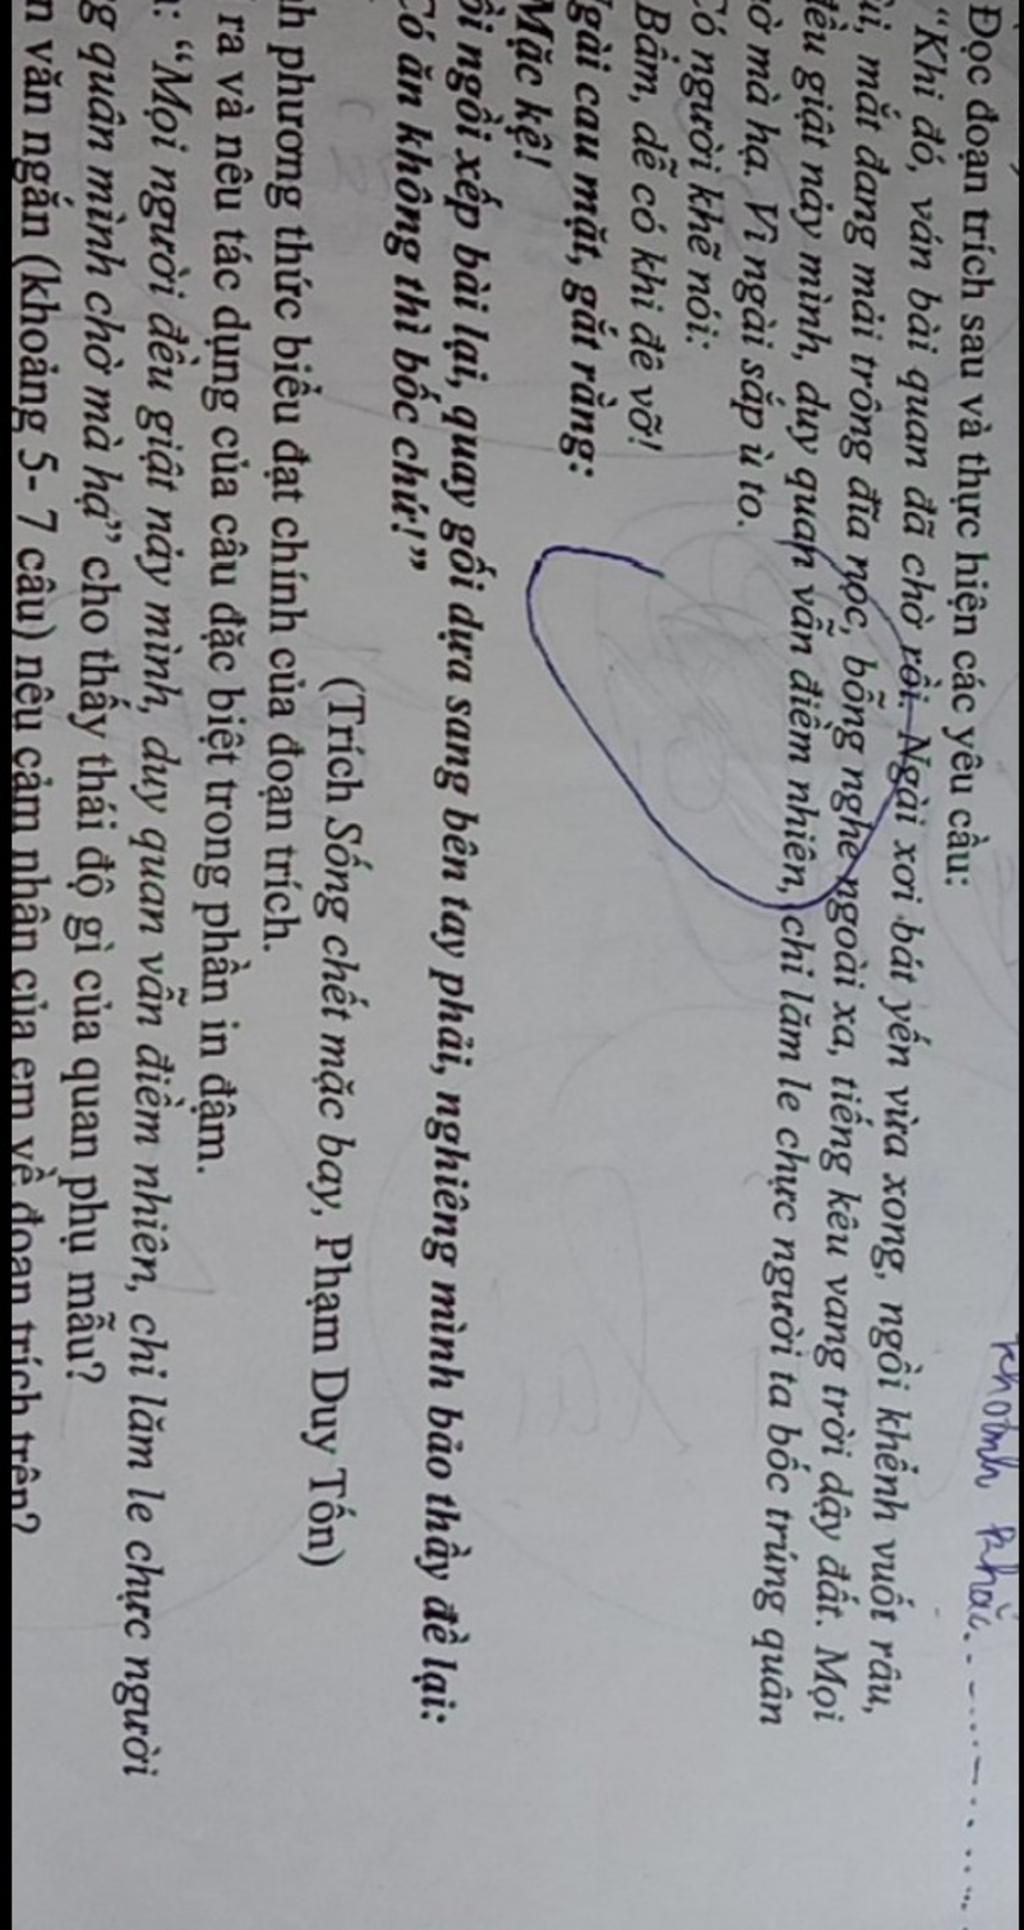 khoảnh khắc
Đọc đoạn trích sau và thực hiện các yêu cầu:
"Khi đó, ván bài quan đã chờ rồi. Ngài xơi bát yến vừa xong, ngồi khểnh vuốt râu,
mắt đang mải trông đĩa nọc, bỗng nghe ngoài xa, tiếng kêu vang trời dậy đất. Mọi
đều giật nảy mình, duy quan vẫn điềm nhiên, chỉ lăm le chực người ta bốc trúng quân
mà hạ. Vì ngài sắp ù to.
Có người khẽ nói:
Bẩm, dễ có khi đê vỡ!
Ngài cau mặt, gắt rằng:
Mặc kệ!
ngồi xếp bài lại, quay gối dựa sang bên tay phải, nghiêng mình bảo thầy đề lại:
Có ăn không thì bốc chứ!"
(Trích Sống chết mặc bay, Phạm Duy Tốn)
phương thức biểu đạt chính của đoạn trích.
ra và nêu tác dụng của câu đặc biệt trong phần in đậm.
: "Mọi người đều giật nảy mình, duy quan vẫn điềm nhiên, chỉ lăm le chực người
quân mình chờ mà hạ" cho thấy thái độ gì của quan phụ mẫu?
văn ngắn (khoảng 5- 7 câu) nêu cảm nhận của em về đoạn trích trên?